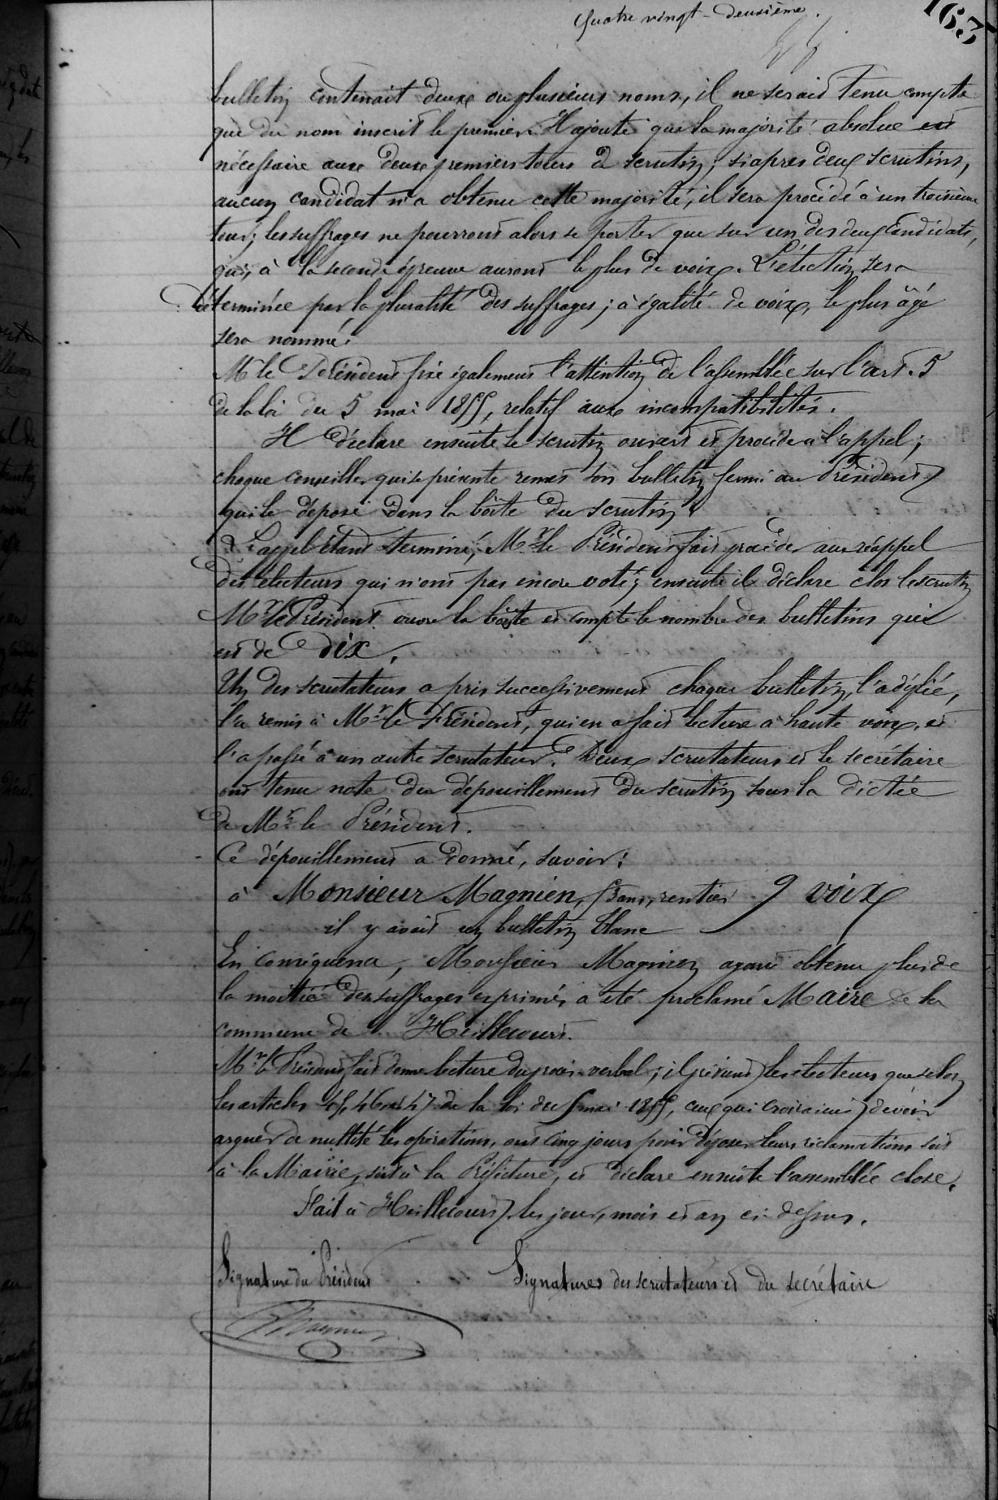 Quatre vingt-deuxième.
163
bulletin contenait deux ou plusieurs noms, il ne serait tenu compte
que du nom inscrit le premier. Il ajoute que la majorité absolue est
nécessaire aux deux premiers tours de scrutin; si après deux scrutins,
aucun candidat n'a obtenu cette majorité, il sera procédé à un troisième
tour; les suffrages ne pourront alors se porter que sur un des deux candidats,
qui, à la seconde épreuve auront le plus de voix. L'élection sera
déterminée par la pluralité des suffrages; à égalité de voix, le plus âgé
sera nommé.
Mr le Président fixe également l'attention de l'assemblée sur l'art. 5
de la loi du 5 mai 1855, relatif aux incompatibilités.
Il déclare ensuite le scrutin ouvert et procède à l'appel;
chaque conseiller qui se présente remet son bulletin fermé au Président
qui le dépose dans la boîte du scrutin.
L'appel étant terminé, Mr le Président fait procéder au réappel
des électeurs qui n'ont pas encore voté; ensuite il déclare clos le scrutin
Mr le Président ouvre la boîte et compte le nombre des bulletins qui
est de Dix.
Un des scrutateurs a pris successivement chaque bulletin, l'a déplié,
l'a remis à Mr le Président, qui en a fait lecture à haute voix, et
l'a passé à un autre scrutateur. Deux scrutateurs et le secrétaire
ont tenu note du dépouillement du scrutin sous la dictée
de Mr le Président.
Ce dépouillement a donné, savoir:
à Monsieur Magnien, rentier 9 voix
il y avait un bulletin blanc
En conséquence, Monsieur Magnien ayant obtenu plus de
la moitié des suffrages exprimés a été proclamé Maire de la
commune de Heillecourt.
Mr le Président fait donner lecture du procès-verbal; il prévient les électeurs que selon
les articles 45, 46 et 47 de la loi du 5 mai 1855, ceux qui croiraient devoir
arguer de nullité les opérations, ont cinq jours pour déposer leurs réclamations soit
à la Mairie, soit à la Préfecture, et déclare ensuite l'assemblée close.
Fait à Heillecourt, les jour, mois et an ci-dessus.
Signature du Président
Signatures des scrutateurs et du secrétaire